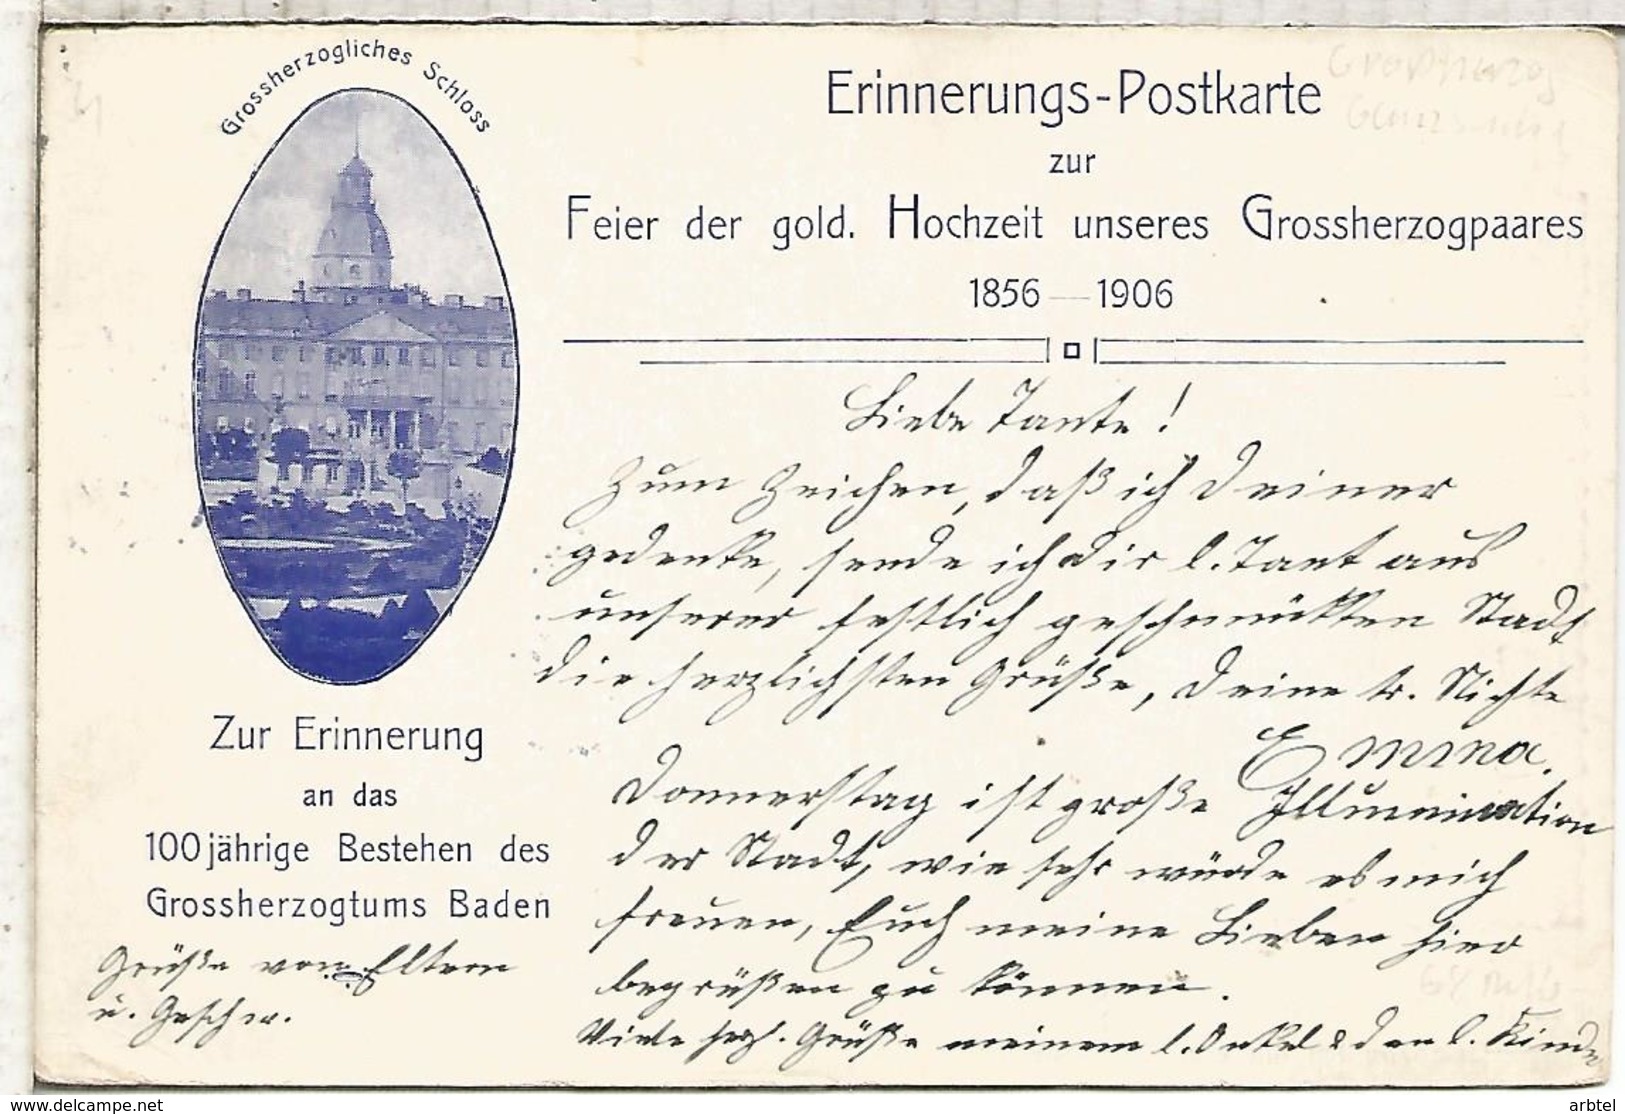 Grossherzogliches Schloss
Erinnerungs-Postkarte
zur
Feier der gold. Hochzeit unseres Grossherzogpaares
1856 — 1906
Liebe Tante!
Zum Zeichen, daß ich Deiner
gedenke, sende ich Dir l. Tant aus
unserer festlich geschmückten Stadt
die herzlichsten Grüße, Deine tr. Nichte
Emma.
Donnerstag ist große Illumination
der Stadt, wie sehr würde es mich
freuen, Euch meine Lieben hier
begrüßen zu können.
Viele herzl. Grüße meinem l. Onkel & den l. Kinder
Zur Erinnerung
an das
100jährige Bestehen des
Grossherzogtums Baden
Grüße von Eltern
u. Geschw.
www.delcampe.net
arbtel